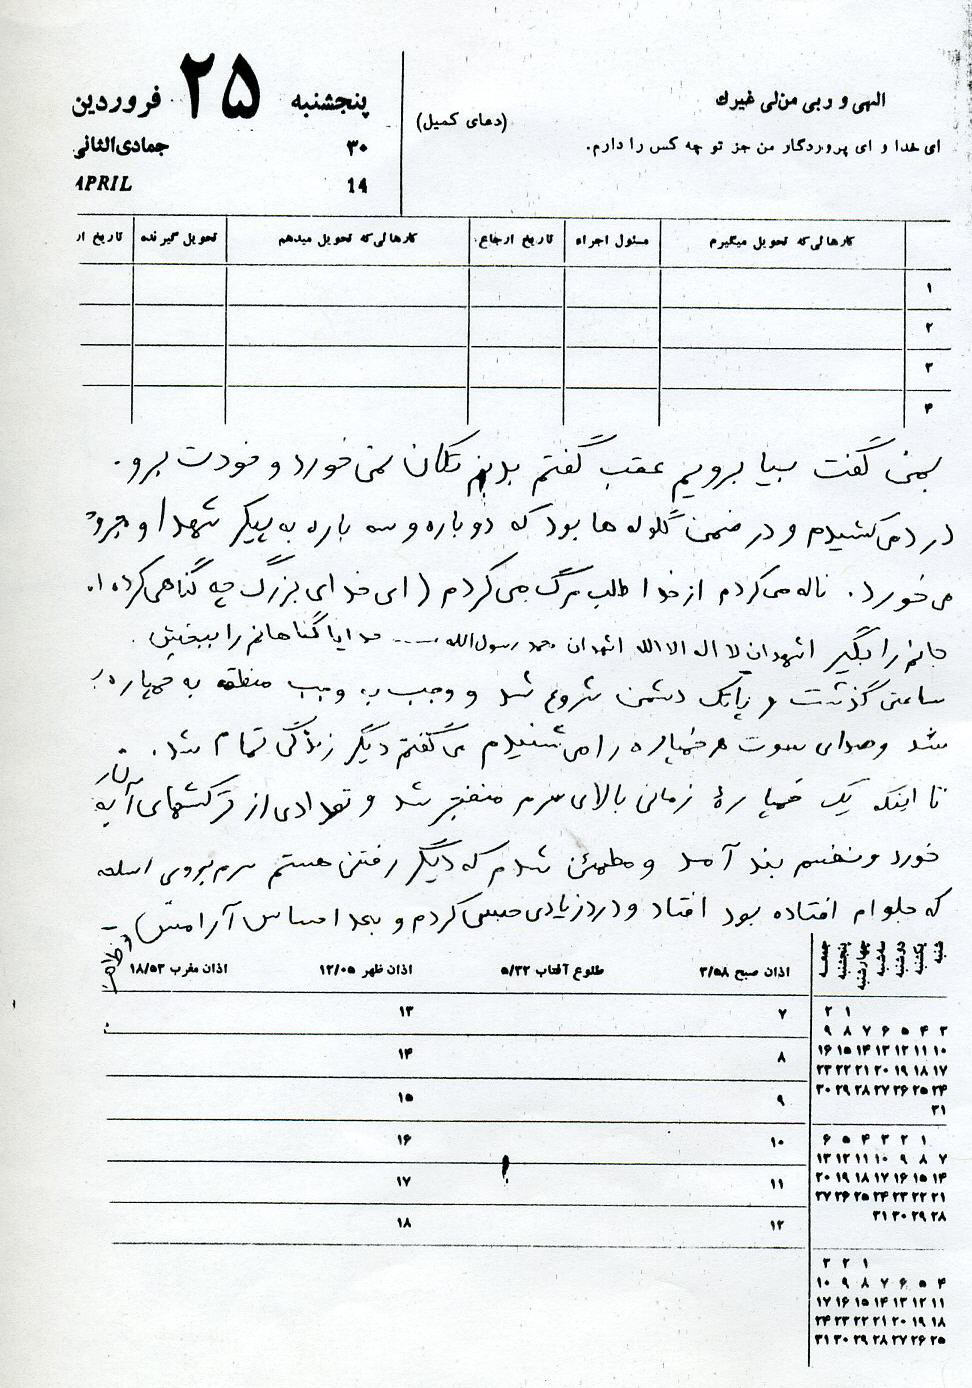 الهی و ربی من‌لی غیرك
ای خدا و ای پروردگار من جز تو چه کس را دارم.
(دعای کمیل)
پنجشنبه ۲۵ فروردین
۳۰ جمادی‌الثانی
14 APRIL
کارهائی‌که تحویل میگیرم مسئول اجراء تاریخ ارجاع کارهائی‌که تحویل میدهم تحویل گیرنده تاریخ ار
۱
۲
۳
۴
بمن گفت بیا برویم عقب گفتم بدنم تکان نمی خورد و خودت برو.
درد می کشیدم و در ضمن گلوله ها بود که دوباره و سه باره به پیکر شهدا و
می خورد. ناله می کردم از خدا طلب مرگ می کردم (ای خدای بزرگ چه گناهی کرده ام
جانم را بگیر اشهد ان لا اله الا الله اشهد ان محمد رسول الله ..... خدایا گناهانم را ببخش.
ساعتی گذشت و پاتک دشمن شروع شد و وجب به وجب منطقه به خمپاره
شد و صدای سوت هر خمپاره را می شنیدم می گفتم دیگر زندگی تمام شد.
تا اینکه یک خمپاره زمانی بالای سرم منفجر شد و تعدادی از ترکشهای آن به
خورد و نفسم بند آمد و مطمئن شدم که دیگر رفتن هستم سرم بروی اسلحه
که جلوام افتاده بود افتاد و درد زیادی حس می کردم و بعد احساس آرامش)
اذان صبح ۳/۵۸ طلوع آفتاب ۵/۳۲ اذان ظهر ۱۲/۰۵ اذان مغرب ۱۸/۵۳
شنبه یکشنبه دوشنبه سه‌شنبه چهارشنبه پنجشنبه جمعه
۷ ۱۳
۸ ۱۴
۹ ۱۵
۱۰ ۱۶
۱۱ ۱۷
۱۲ ۱۸
۱ ۲
۳ ۴ ۵ ۶ ۷ ۸ ۹
۱۰ ۱۱ ۱۲ ۱۳ ۱۴ ۱۵ ۱۶
۱۷ ۱۸ ۱۹ ۲۰ ۲۱ ۲۲ ۲۳
۲۴ ۲۵ ۲۶ ۲۷ ۲۸ ۲۹ ۳۰
۳۱
۱ ۲ ۳ ۴ ۵ ۶
۷ ۸ ۹ ۱۰ ۱۱ ۱۲ ۱۳
۱۴ ۱۵ ۱۶ ۱۷ ۱۸ ۱۹ ۲۰
۲۱ ۲۲ ۲۳ ۲۴ ۲۵ ۲۶ ۲۷
۲۸ ۲۹ ۳۰ ۳۱
۱ ۲ ۳
۴ ۵ ۶ ۷ ۸ ۹ ۱۰
۱۱ ۱۲ ۱۳ ۱۴ ۱۵ ۱۶ ۱۷
۱۸ ۱۹ ۲۰ ۲۱ ۲۲ ۲۳ ۲۴
۲۵ ۲۶ ۲۷ ۲۸ ۲۹ ۳۰ ۳۱